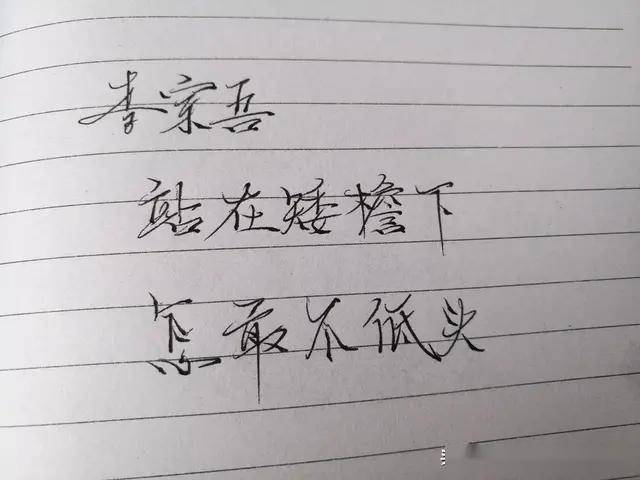 李宗吾
站在矮檐下
怎敢不低头